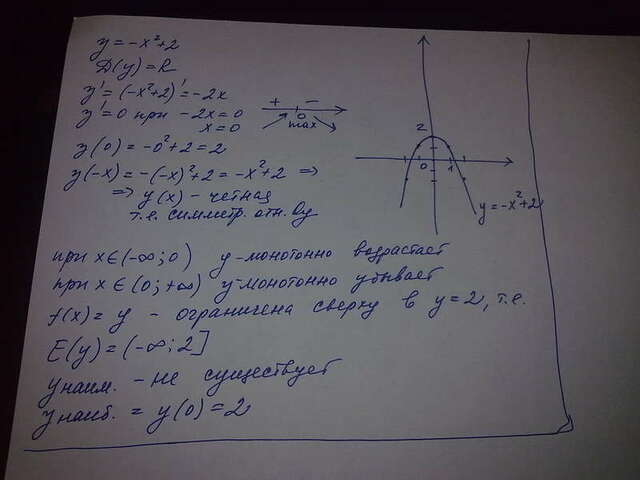 y = -x²+2
D(y)=R
y' = (-x²+2)' = -2x
y' = 0 при -2x=0
x=0
+ −
0
max
y(0) = -0²+2 = 2
y(-x) = -(-x)²+2 = -x²+2 =>
=> y(x) - четная
т.е. симметр. отн. Oy
2
0 1
y=-x²+2
при x∈(-∞;0) y-монотонно возрастает
при x∈(0;+∞) y-монотонно убывает
f(x)=y - ограничена сверху в y=2, т.е.
E(y)=(-∞;2]
y наим. - не существует
y наиб. = y(0)=2